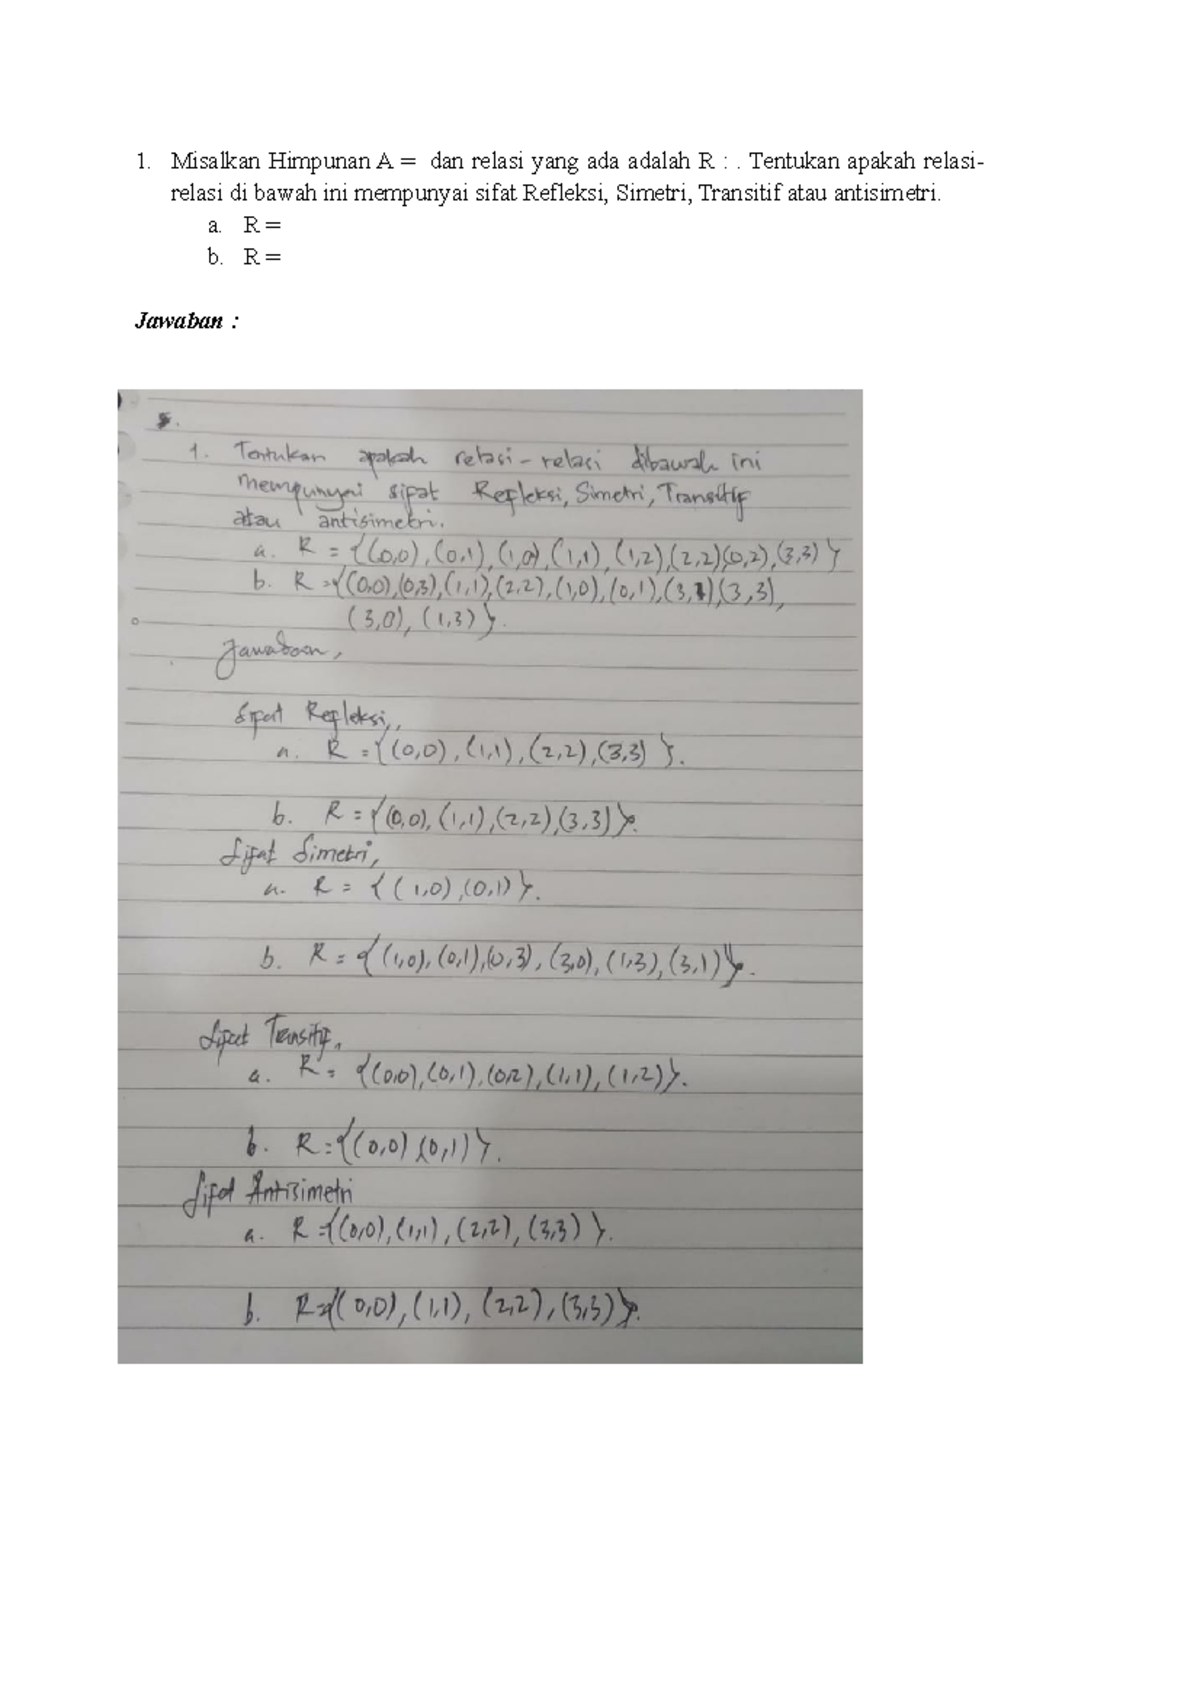 1. Misalkan Himpunan A = dan relasi yang ada adalah R : . Tentukan apakah relasi-
relasi di bawah ini mempunyai sifat Refleksi, Simetri, Transitif atau antisimetri.
a. R =
b. R =
Jawaban :
5.
1. Tentukan apakah relasi - relasi dibawah ini
mempunyai sifat Refleksi, Simetri, Transitif
atau antisimetri.
a. R = {(0,0), (0,1), (1,0), (1,1), (1,2), (2,2)(0,2), (3,3)}
b. R = {(0,0),(0,3),(1,1),(2,2),(1,0),(0,1),(3,1),(3,3),
(3,0), (1,3)}.
Jawaban,
Sifat Refleksi,,
a. R = {(0,0), (1,1), (2,2), (3,3)}.
b. R = {(0,0), (1,1), (2,2), (3,3)}.
Sifat Simetri,
a. R = {(1,0), (0,1)}.
b. R = {(1,0), (0,1), (0,3), (3,0), (1,3), (3,1)}.
Sifat Transitif,
a. R = {(0,0), (0,1), (0,2), (1,1), (1,2)}.
b. R = {(0,0) (0,1)}.
Sifat Antisimetri
a. R = {(0,0), (1,1), (2,2), (3,3)}.
b. R = {(0,0), (1,1), (2,2), (3,3)}.